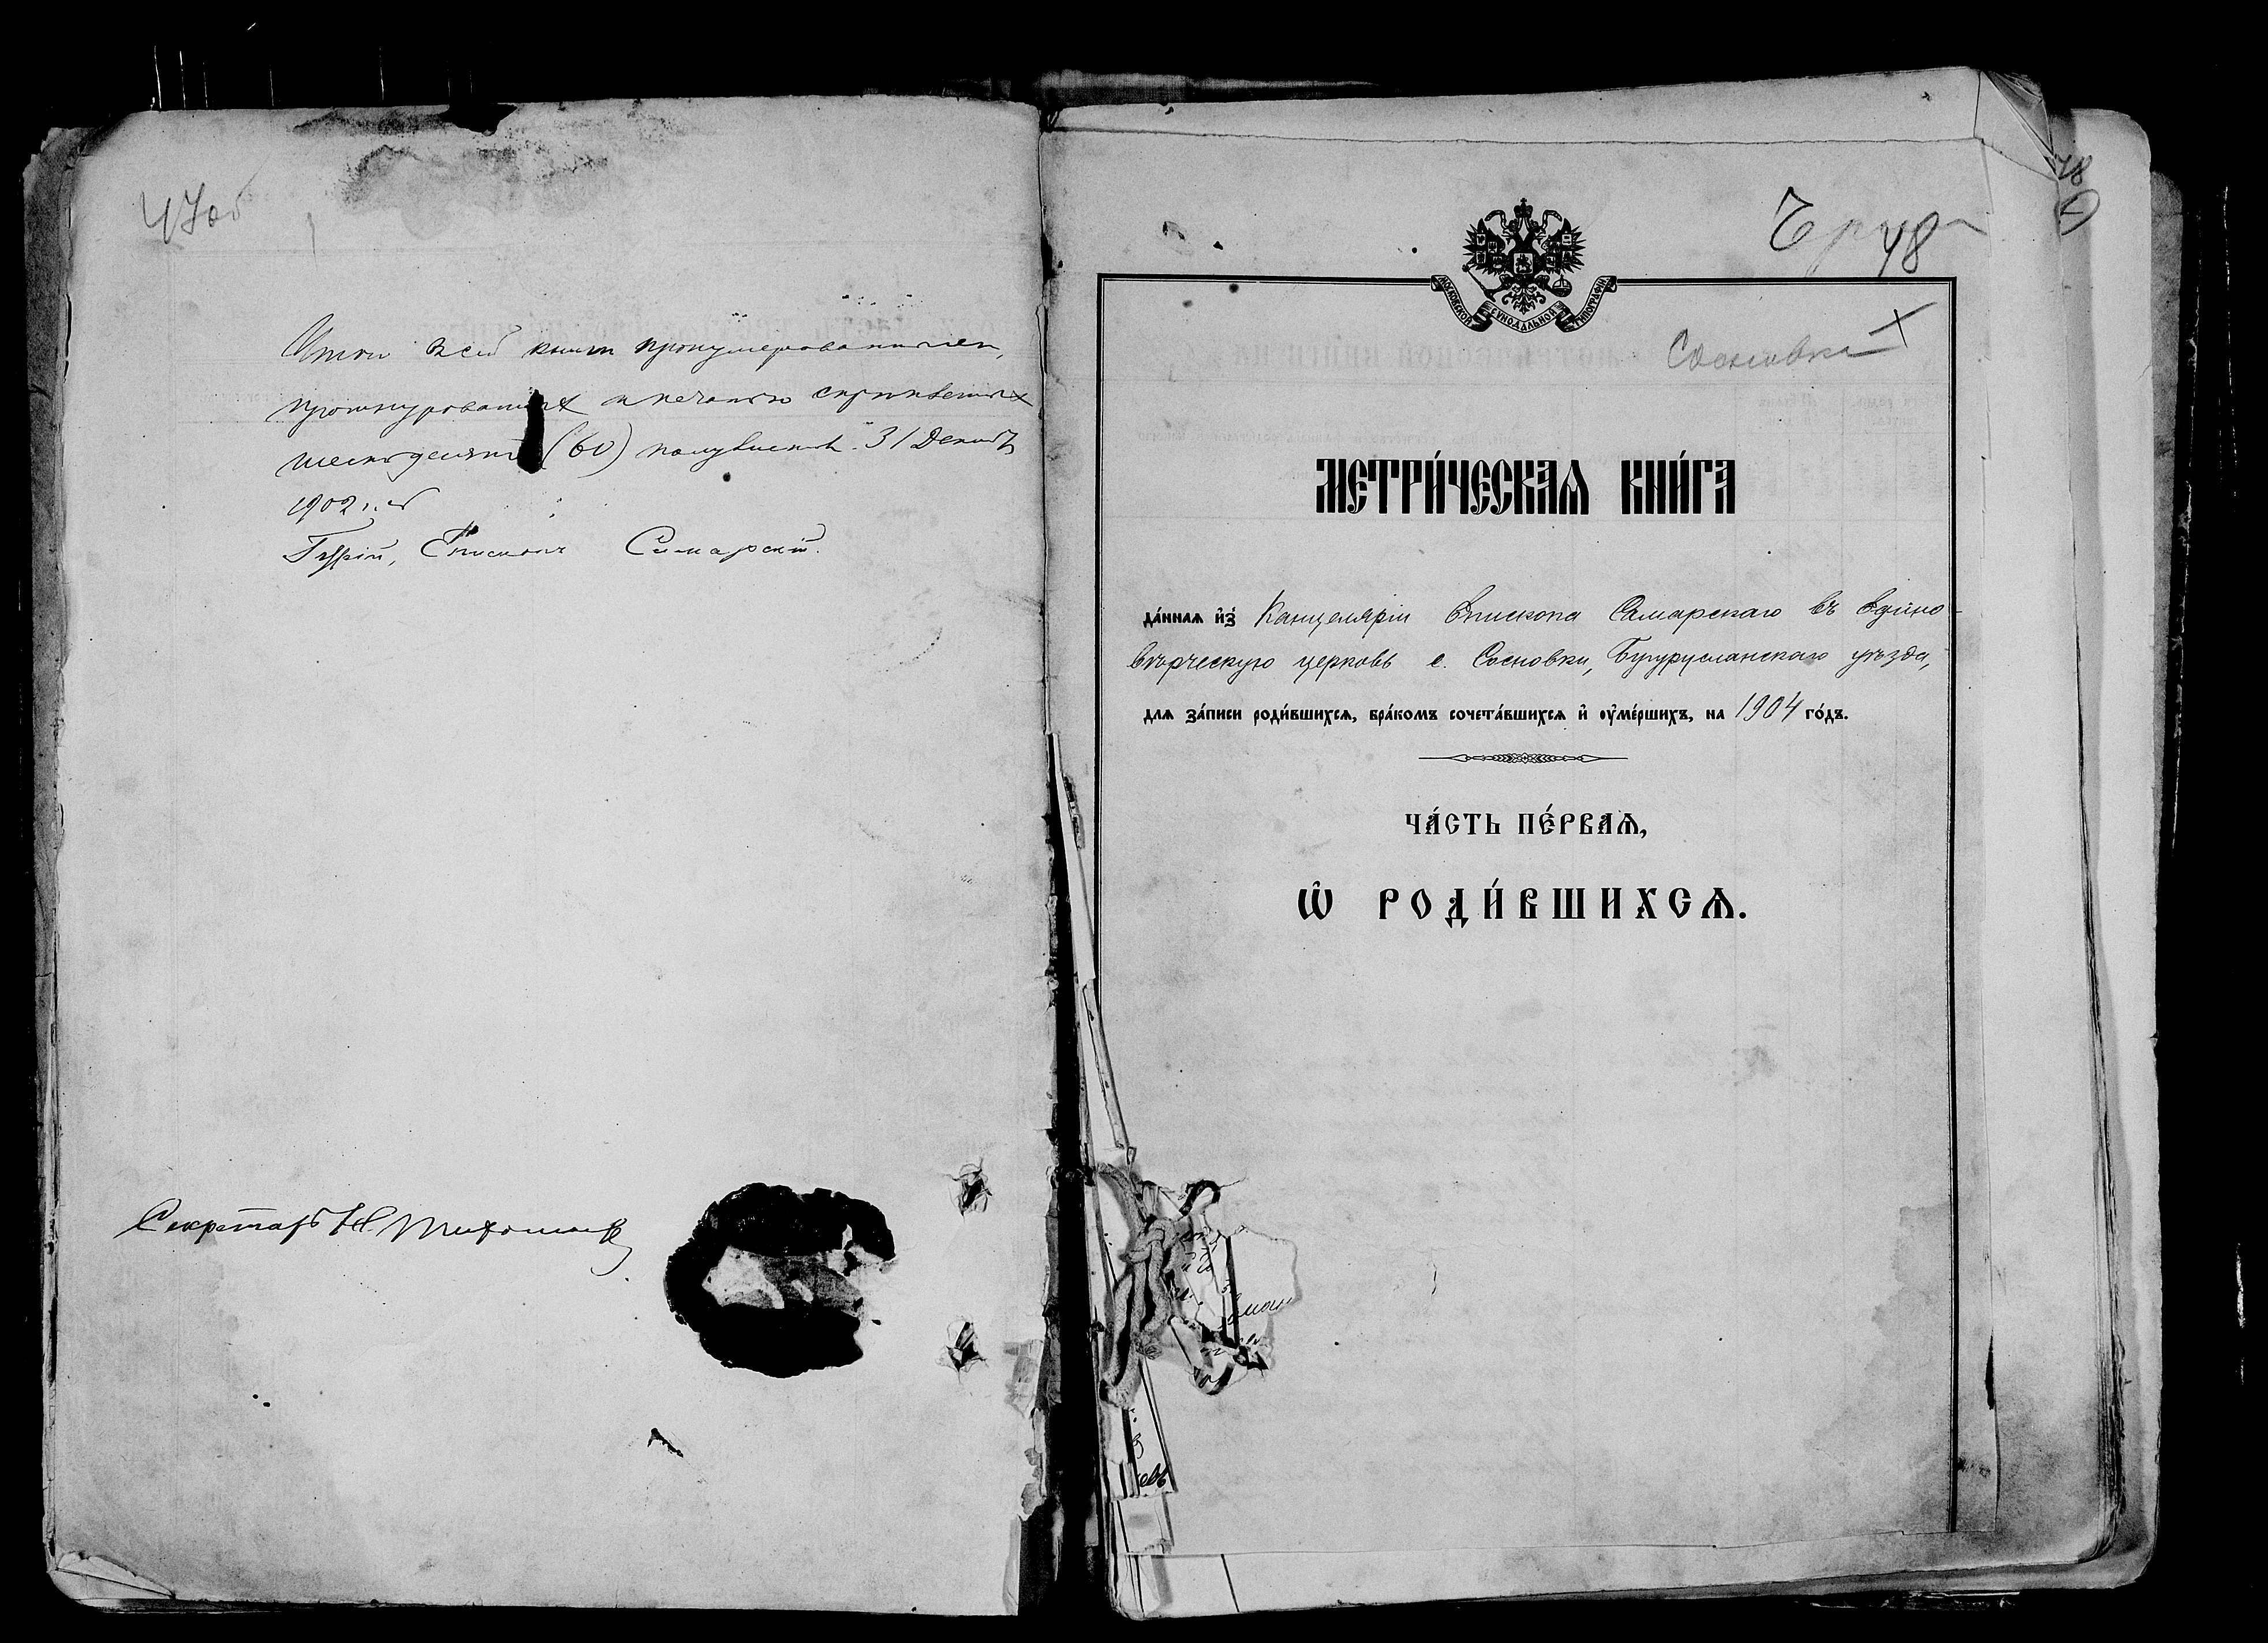 47об
Итого всей книги пронумерованных,
прошнурованных и печатью скрепленных
шестьдесят (60) полулистов. 31 Декабр.
1902 г.
Гурій, Епископъ Самарскій.
Секретарь Н.
48
48
МОСКОВСКОЙ СѴНОДАЛЬНОЙ ТИПОГРАФІИ
Сосновка
МЕТРИ́ЧЕСКАѦ КНИ́ГА
да́ннаѧ и҆з̾ Канцеляріи Епископа Самарскаго въ Едино-
вѣрческую церковь с. Сосновки, Бугурусланскаго уѣзда,
для за́писи роди́вшихсѧ, бра́комъ сочета́вшихсѧ и҆ оу҆ме́ршихъ, на 1904 го́дъ.
ЧА́СТЬ ПЕ́РВАѦ,
Ѡ҆ РОДИ́ВШИХСѦ.